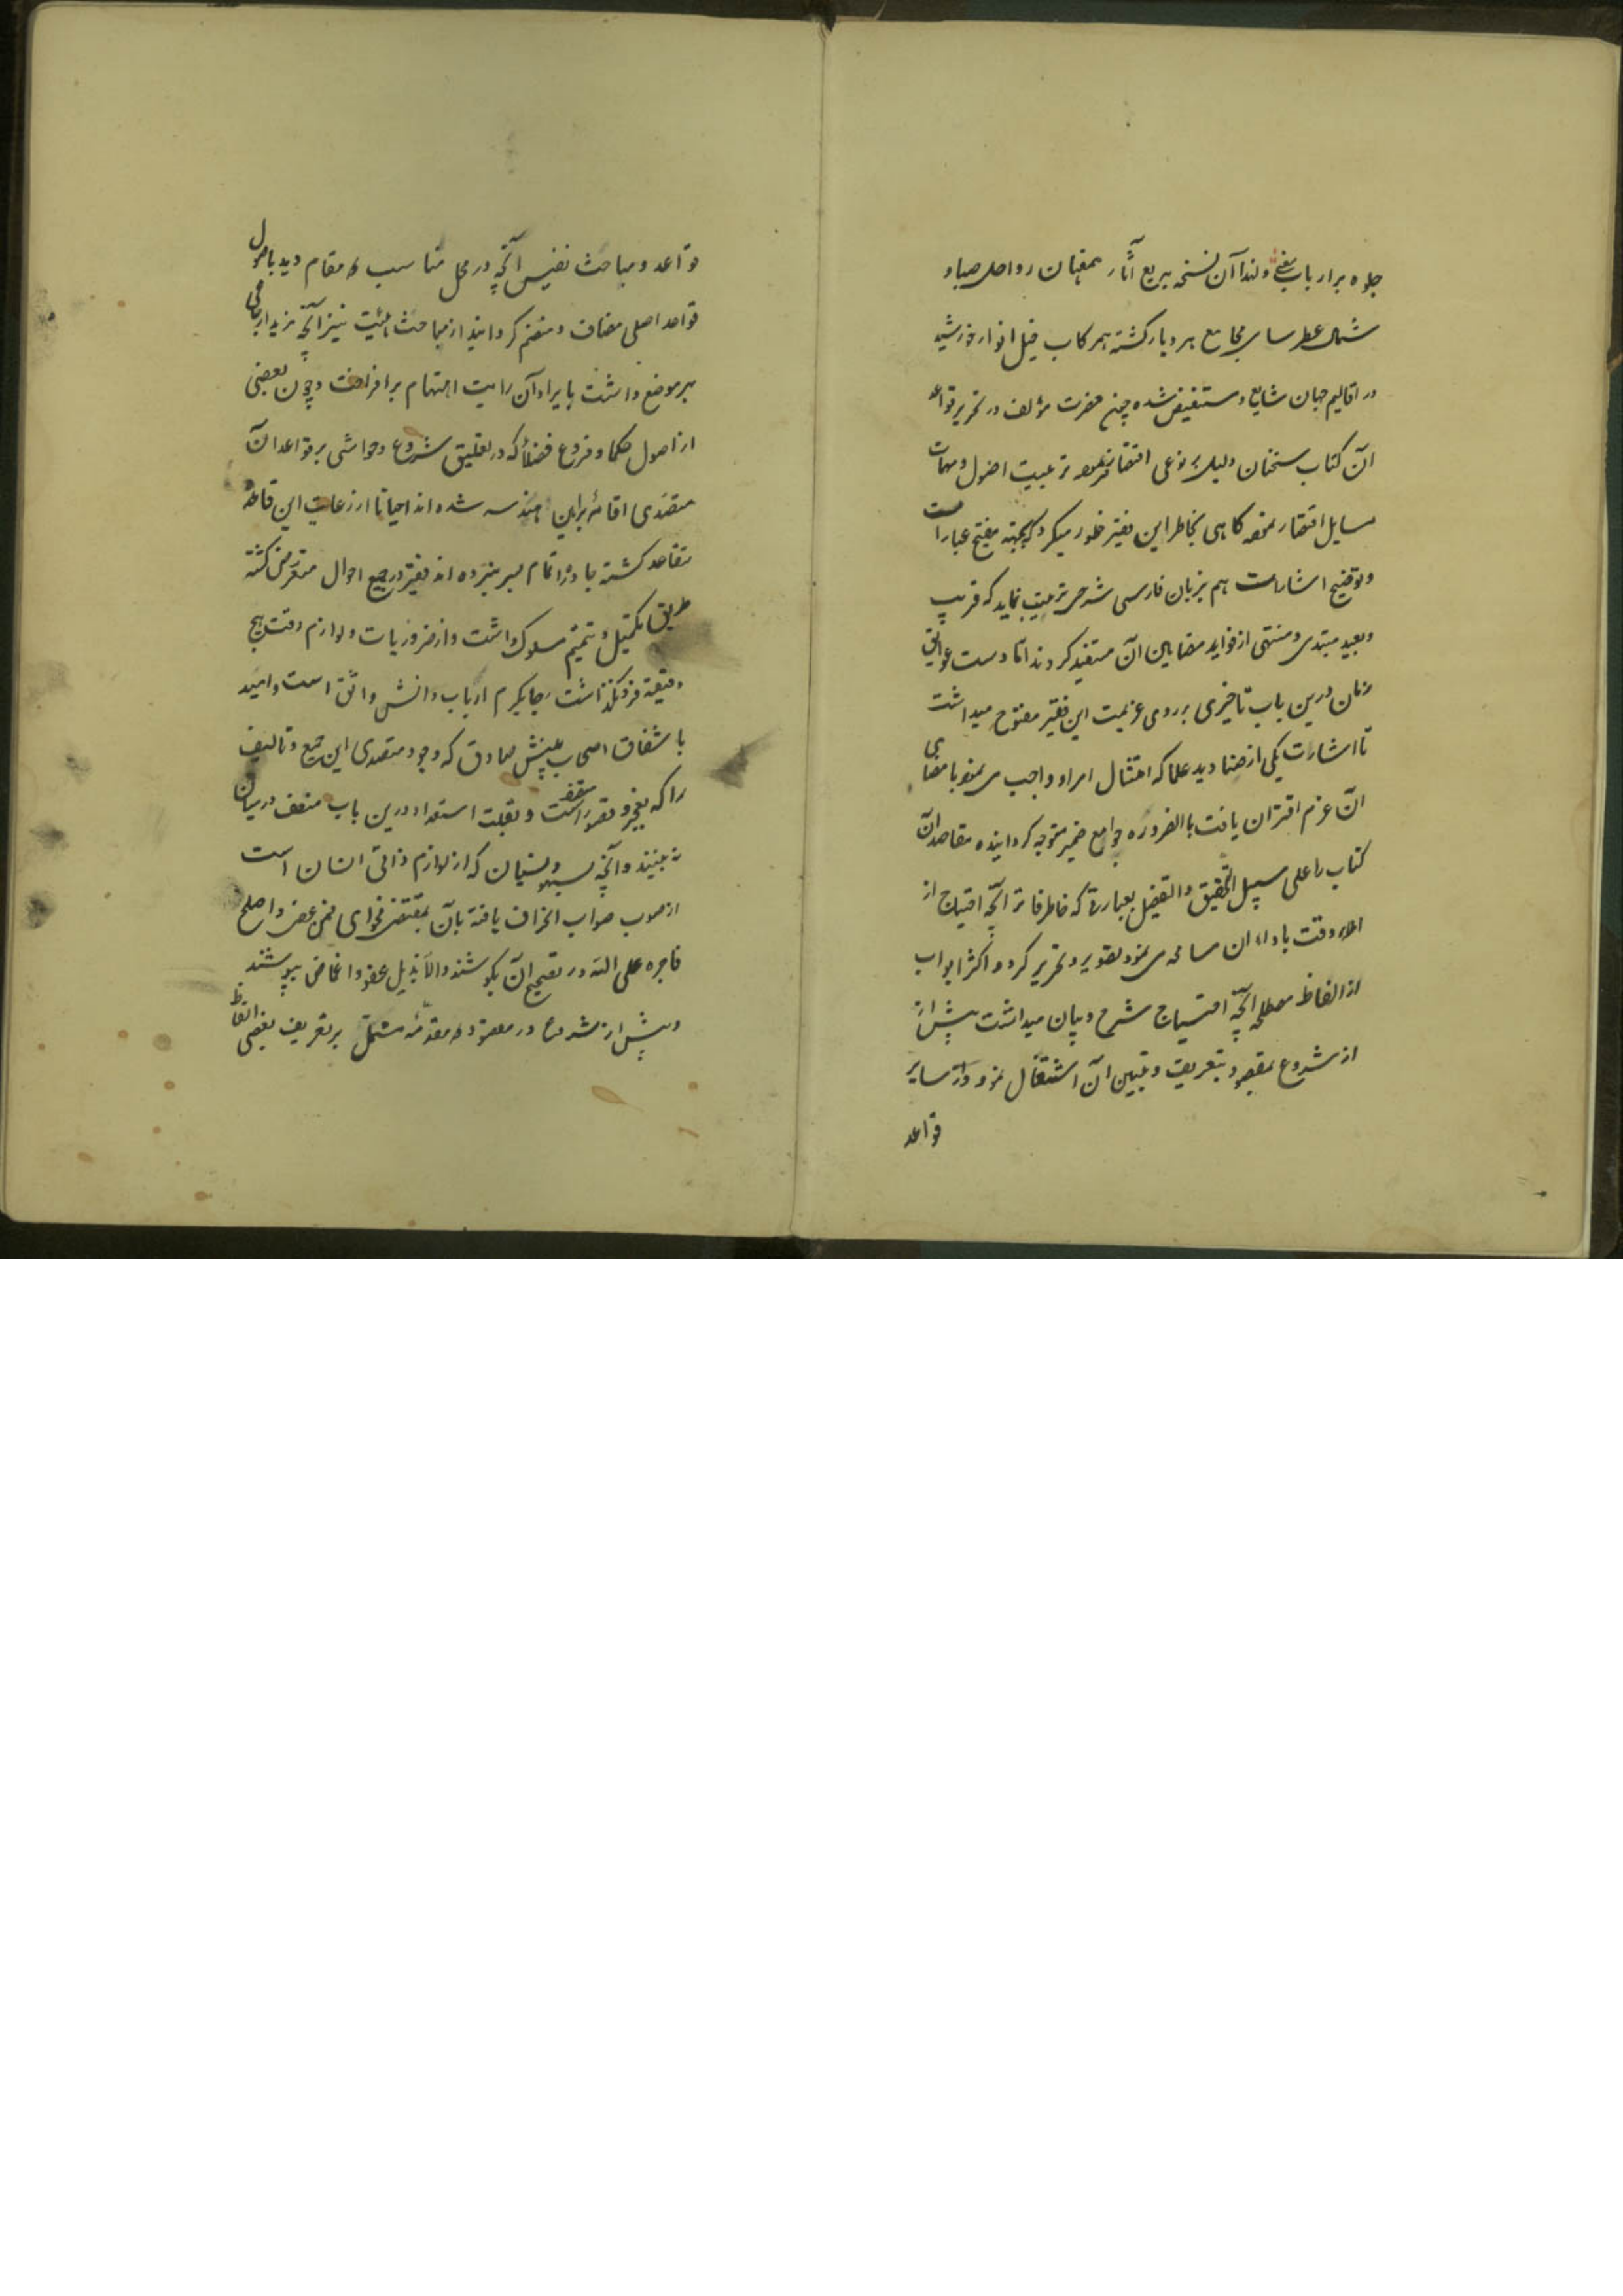 جلوه بر ارباب بفی ولهذا آن نسخه بدیع آثار همعنان رواحل صبا و
شمال عطرسای مجامع هر دیار کشته همرکاب خیل انوار خورشید
در اقالیم جهان شایع و مستفیض شده چون حضرت مؤلف در تحریر قواعد
آن کتاب سخنان دلپذیر نوعی اختصار فرموده ترتیب اصول و مهمات
مسایل اختصار نموده کاهی بخاطر این فقیر خطور میکرد که بجهة مفتح عبارات
و توضیح اشارات هم بزبان فارسی شرحی ترتیب نماید که قریب
و بعید مبتدی و منتهی از فواید مضامین آن مستفید کردند اما دست عوایق
زمان درین باب تاخیری بر روی عزیمت این فقیر مفتوح میداشت
تا اشارت یکی از صنادید علما که امتثال امر او واجب می نمود با مضای
آن عزم اقتران یافت بالضروره جوامع ضمیر متوجه کردانیده مقاصد آن
کتاب را علی سبیل التحقیق والتفصیل بعبارتی که خاطر فاتر آنچه احتیاج از
املاء وقت باداء آن مسامحه می نمود تقویر و تحریر کرد و اکثر ابواب
از الفاظ مصطلحه آنچه احتیاج شرح و بیان میداشت پیش از
از شروع بمقصود بتعریف و تبیین آن اشتغال نمود و از سایر
قواعد
قواعد و مباحث نفیس آنچه در محل مناسب و مقام دید باصول
قواعد اصلی مضاف و منضم کردانید از مباحث هیئت نیز آنچه مزید ارتباطی
بهر موضع داشت بایراد آن رایت اهتمام برافراخت و چون بعضی
از اصول حکما و فروع فضلا که در تعلیق شروع و حواشی بر قواعد آن
متصدی اقامة براهین هندسه شده اند احیانا از رعایت این قاعده
متقاعد کشته با وزا تمام سر نبرده اند فقیر در جمیع احوال متعرض کشته
طریق تکمیل و تتمیم مسلوک داشت و از ضروریات و لوازم وقت هیچ
دقیقه فرو نکذاشت رجا بکرم ارباب دانش واثق است و امید
باشفاق اصحاب بینش صادق که وجود متصدی این جمع و تالیف
را که بعجز و قصور متصف است و بقلت استعداد درین باب متصف در میان
نه بینند و آنچه بسهو و نسیان که از لوازم ذاتی انسان است
از صوب صواب انحراف یافته بآن بمقتضی فحوای فمن عفی و اصلح
فاجره علی الله در تصحیح آن بکوشند و الا بذیل عفو و اغماض بپوشند
و پیش از شروع در مقصود مقدمه مشتمل بر تعریف بعضی الفاظ